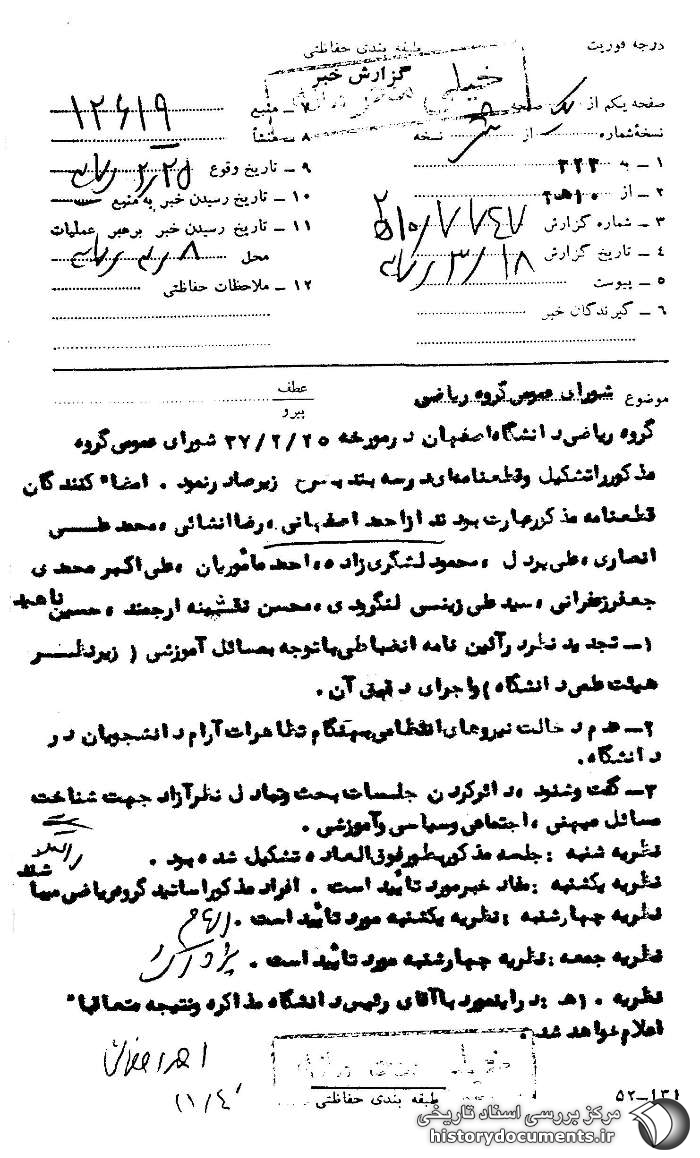 درجه فوریت
طبقه بندی حفاظتی
خیلی محرمانه
گزارش خبر
صفحه یکم از یک صفحه
نسخهٔ شماره از نسخه
۱ – به ۳۲۳
۲ – از ۱۰ه۲
۳ – شماره گزارش
۴ – تاریخ گزارش
۵ – پیوست
۶ – گیرندگان خبر
۷ – منبع ۱۲۶۱۹
۸ – منشأ
۹ – تاریخ وقوع
۱۰ – تاریخ رسیدن خبر به منبع
۱۱ – تاریخ رسیدن خبر برهبر عملیات
محل
۱۲ – ملاحظات حفاظتی
موضوع شورای عمومی گروه ریاضی
عطف
پیرو
گروه ریاضی دانشگاه اصفهان در مورخه ۳۷/۲/۲۵ شورای عمومی گروه
مذکور را تشکیل و قطعنامه‌ای در سه بند بشرح زیر صادر نمود . امضاء کنندگان
قطعنامه مذکور عبارت بودند از احمد اصفهانی ، رضا انشائی ، محمد علی
انصاری ، علی پردل ، محمود لشگری زاده ، احمد مأموریان ، علی اکبر محمدی
جعفر زعفرانی ، سید علی زینسی لنگرودی ، محسن نقشینه ارجمند ، حسین ناهید
۱– تجدید نظر در آئین نامه انضباطی با توجه به مسائل آموزشی ( زیر نظر
هیئت علمی دانشگاه ) و اجرای دقیق آن .
۲– عدم دخالت نیروهای انتظامی بهنگام تظاهرات آرام دانشجویان در
دانشگاه .
۳– گفت و شنود ، دائر کردن جلسات بحث و تبادل نظر آزاد جهت شناخت
مسائل میهنی ، اجتماعی و سیاسی و آموزشی .
نظریه شنبه : جلسه مذکور بطور فوق العاده تشکیل شده بود .
نظریه یکشنبه : مفاد خبر مورد تأیید است . افراد مذکور اساتید گروه ریاضی میباشند
نظریه چهارشنبه : نظریه یکشنبه مورد تأئید است .
نظریه جمعه : نظریه چهارشنبه مورد تأئید است .
نظریه ۱۰ ه : در اینمورد با آقای رئیس دانشگاه مذاکره و نتیجه متعاقباً
اعلام خواهد شد .
خیلی محرمانه
طبقه بندی حفاظتی
۱۱/۴
۵۲–۱۳۱
مرکز بررسی اسناد تاریخی
historydocuments.ir